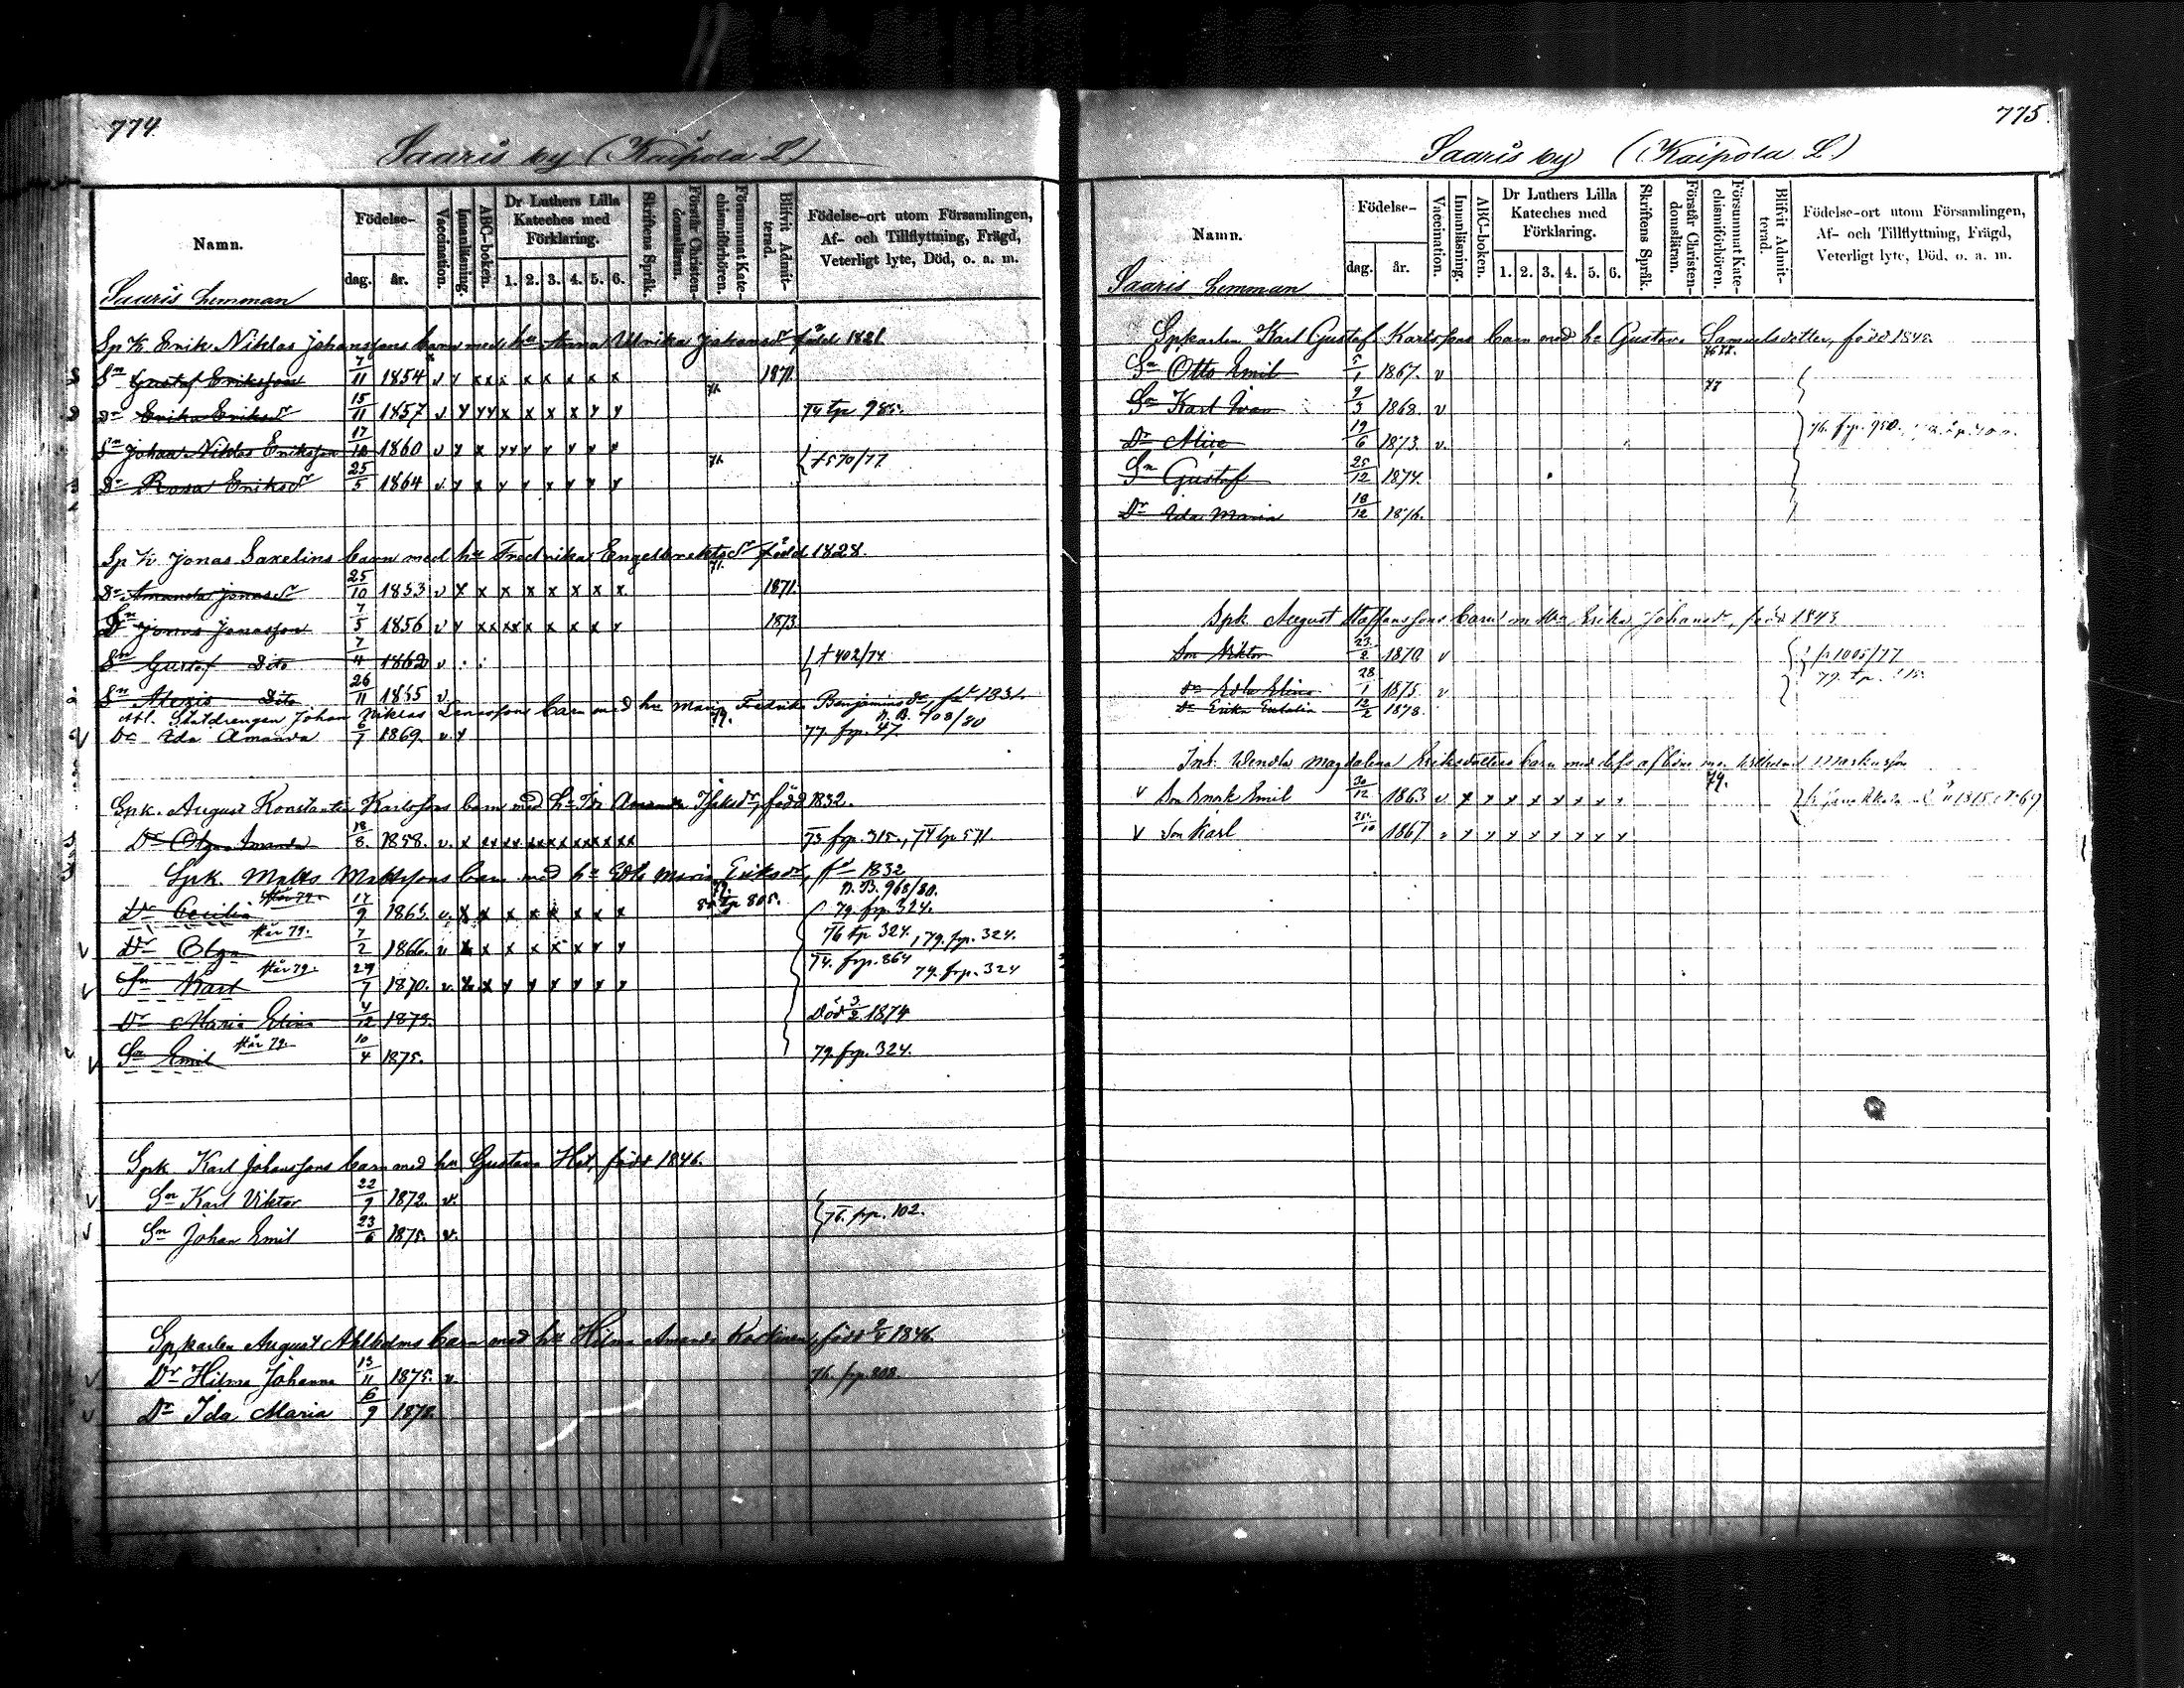 774.
Saaris by (Kaipola L)
Namn.
Födelse-
dag.
år.
Vaccination.
Innanläsning.
ABC-boken.
Dr Luthers Lilla Kateches med Förklaring.
1. 2. 3. 4. 5. 6.
Skriftens Språk.
Förstår Christendomsläran.
Försummat Katechismiförhören.
Blifvit Admitterad.
Födelse-ort utom Församlingen,
Af- och Tillflyttning, Frägd,
Veterligt lyte, Död, o. a. m.
Saaris Lemman
Sp K. Erik Niklas Johanssons barn med hu Anna Ulrika Johansdr född 1821.
Sn Gustaf Eriksson 7/11 1854 v y x x x x x x x x 1871.
Dr Erika Eriksdr 15/11 1857 v y y y x x x x y y 71. 74 tp 985.
Sn Johan Niklas Eriksson 17/12 1860 v y x y y y y y y
Dr Rosa Eriksdr 25/5 1864 v y x y y x y y y 71. † 570/77
Sp K Jonas Saxelins barn med hu Fredrika Engelbrektsdr född 1828.
Dr Amanda Jonasdr 25/10 1853 v y x x x x x x x 71. 1871.
Sn Jonas Jonasson 7/5 1856 v y x x x x x x x x y 1873
Sn Gustaf Dito 7/4 1862 v † 402/74
Sn Alexis Dito 26/11 1865 v
Afl. Statdrengen Johan Niklas barn med hu Maria Fredrika Benjaminsdr, fd 1831.
Dr Ida Amanda 6/7 1869. v. y 79. N. B. 708/80
77. frp. 47
Spk. August Konstantin Karlssons barn med hu Amanda född 1832.
Dr Olga Amanda 18/8. 1858. v. x x x x x x x x x x x x x x 73 frp. 315., 74 tp 571.
Spk. Matts Mattssons barn med hu Edla Maria Eriksdr, fd 1832
Dr Cecilia står 79. 17/9 1863. v. x x x x x x x x 79. 80 tp 805. N. B. 968/80.
79. frp. 324.
Dr Olga står 79. 7/2 1866. v x x x x x x y y 76 tp. 324., 79. frp. 324.
Sn Karl står 79. 29/7 1870. v. x x y y y y y y 74. frp. 864 79. frp. 324
Dr Maria Elina 4/12 1873. Död 3/2 1874
Sn Emil står 79. 10/4 1875. 79. frp. 324.
Spk. Karl Johanssons barn med hu Gustava född 1846.
Sn Karl Viktor 22/9 1872. v.
Sn Johan Emil 23/6 1875. v. 76. frp. 102.
Spkarlen August Ahlholms barn med hu Hilma Amanda född 1846.
Dr Hilma Johanna 13/11 1875. v 76. frp. 808.
Dr Ida Maria 6/9 1878.
775.
Saaris by (Kaipola L.)
Namn.
Födelse-
dag.
år.
Vaccination.
Innanläsning.
ABC-boken.
Dr Luthers Lilla Kateches med Förklaring.
1. 2. 3. 4. 5. 6.
Skriftens Språk.
Förstår Christendomsläran.
Försummat Katechismiförhören.
Blifvit Admitterad.
Födelse-ort utom Församlingen,
Af- och Tillflyttning, Frägd,
Veterligt lyte, Död, o. a. m.
Saaris Lemman
Spkarlen Karl Gustaf Karlssons barn med hu Gustava Samuelsdotter, född 1848.
Sn Otto Emil 5/1 1867. v
Sn Karl Ivar 9/3 1868. v 77
Dr Alice 19/6 1873. v. 76. frp. 950.
Sn Gustaf 25/12 1874.
Dr Ida Maria 18/12 1876.
Spk August Staffanssons barn m hu Erika Johansdr, född 1843
Son Viktor 23/2 1870 v p 1005/77
Dr Edla Elina 28/1 1875. v 79. tp.
Dr Erika Eulalia 12/2 1878.
Inh. Wendla Magdalena Eriksdotters barn med dess aflidne man
Son Enok Emil 30/12 1863 v x y y y y y y y 79.
Son Karl 25/10 1867 v y y y y y y y y